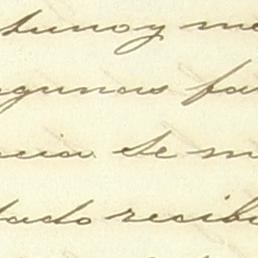 tuno y me
gunas fa
cia de m
tado recib